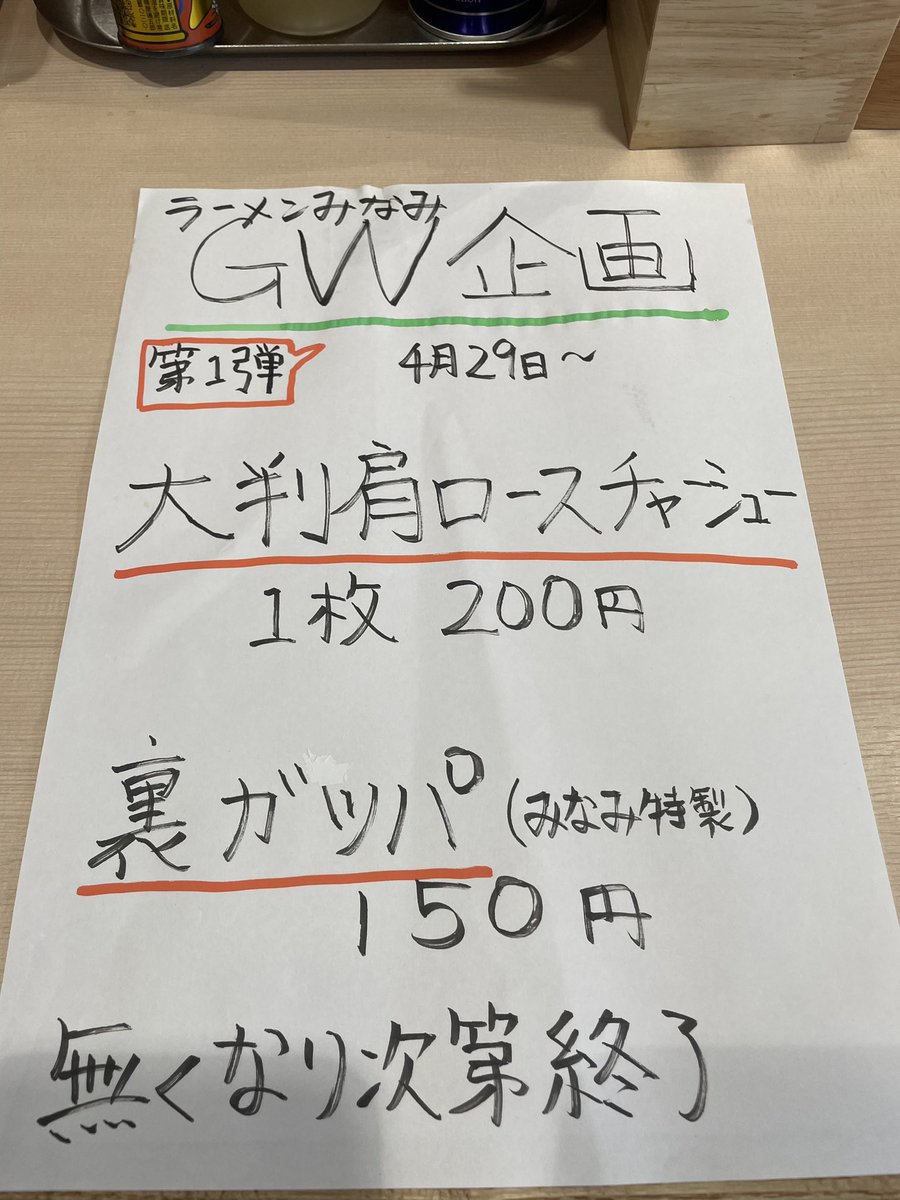 ラーメンみなみ
GW企画
第1弾 4月29日～
大判肩ロースチャーシュー
1枚 200円
裏ガツパ(みなみ特製)
150円
無くなり次第終了